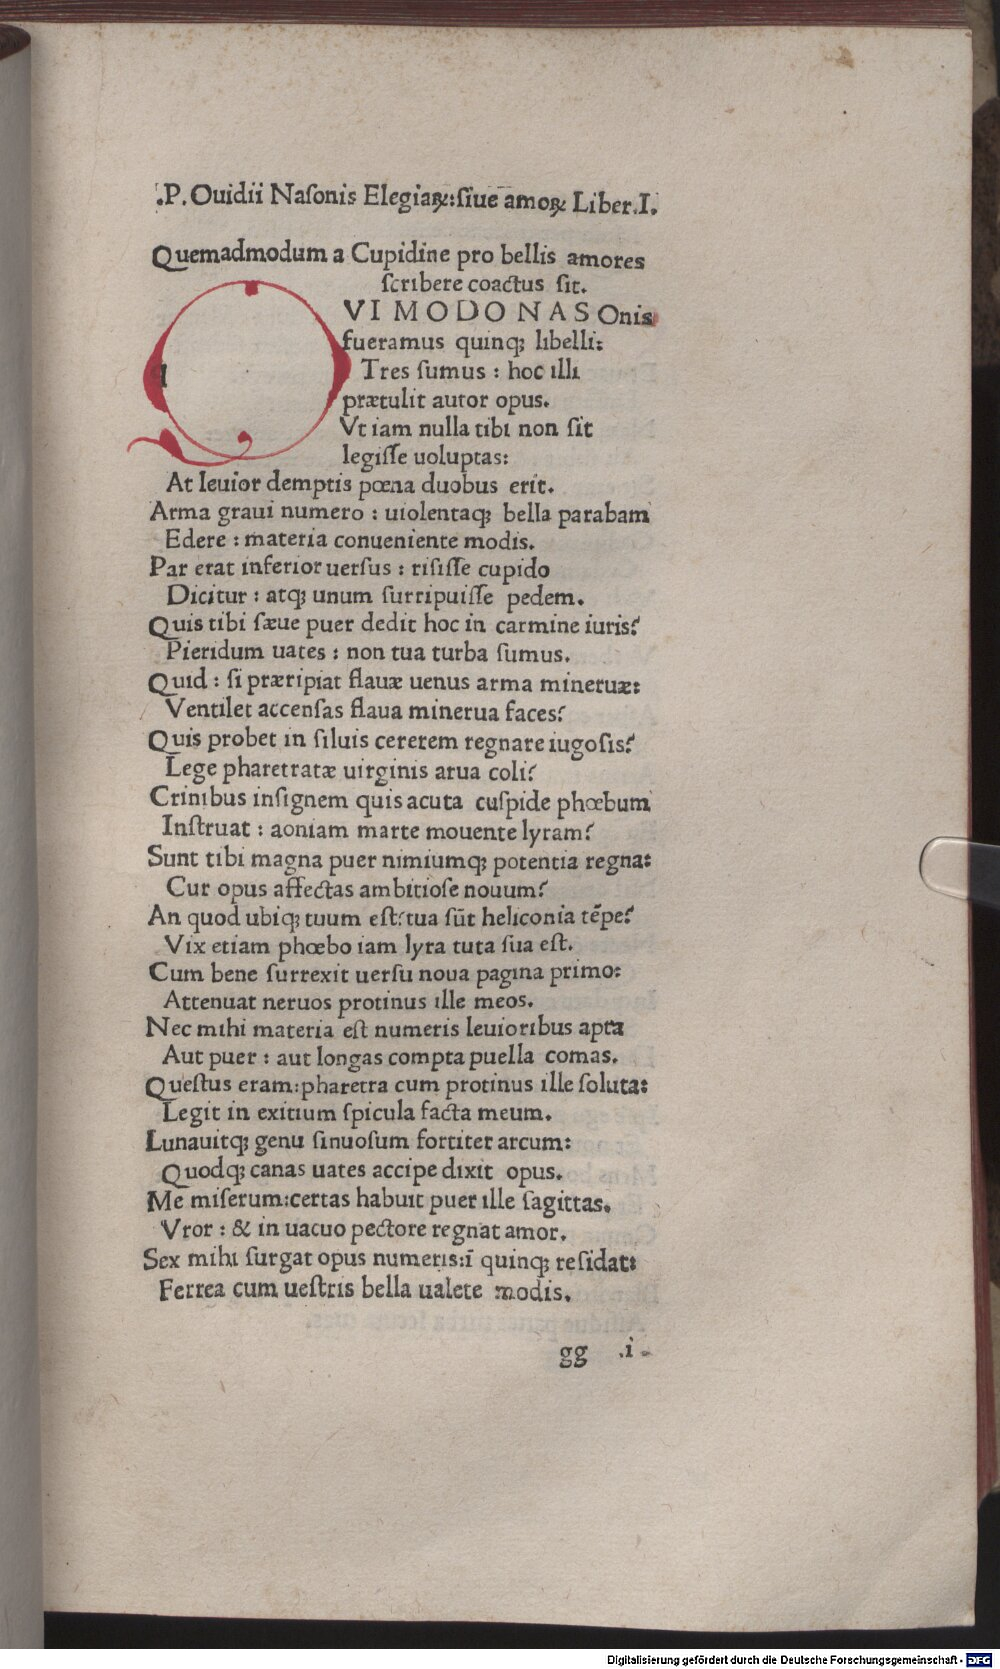 .P. Ouidii Naſonis Elegiaꝝ: ſiue amoꝝ Liber.I.
Quemadmodum a Cupidine pro bellis amores
ſcribere coactus ſit.
QVI MODO NASOnis
fueramus quinqꝫ libelli:
Tres ſumus : hoc illi
prætulit autor opus.
Vt iam nulla tibi non ſit
legiſſe uoluptas:
At leuior demptis pœna duobus erit.
Arma graui numero : uiolentaqꝫ bella parabam
Edere : materia conueniente modis.
Par erat inferior uerſus : riſiſſe cupido
Dicitur : atqꝫ unum ſurripuiſſe pedem.
Quis tibi ſæue puer dedit hoc in carmine iuris?
Pieridum uates : non tua turba ſumus.
Quid : ſi præripiat flauæ uenus arma mineruæ:
Ventilet accenſas flaua minerua faces?
Quis probet in ſiluis cererem regnare iugoſis?
Lege pharetratæ uirginis arua coli?
Crinibus inſignem quis acuta cuſpide phœbum
Inſtruat : aoniam marte mouente lyram?
Sunt tibi magna puer nimiumqꝫ potentia regna:
Cur opus affectas ambitioſe nouum?
An quod ubiqꝫ tuum eſt? tua sūt heliconia tēpe?
Vix etiam phœbo iam lyra tuta ſua eſt.
Cum bene ſurrexit uerſu noua pagina primo:
Attenuat neruos protinus ille meos.
Nec mihi materia eſt numeris leuioribus apta
Aut puer : aut longas compta puella comas.
Queſtus eram: pharetra cum protinus ille ſoluta:
Legit in exitium ſpicula facta meum.
Lunauitqꝫ genu ſinuoſum fortiter arcum:
Quodqꝫ canas uates accipe dixit opus.
Me miſerum: certas habuit puer ille ſagittas.
Vror : & in uacuo pectore regnat amor.
Sex mihi ſurgat opus numeris: ī quinqꝫ reſidat:
Ferrea cum ueſtris bella ualete modis.
gg .i.
Digitalisierung gefördert durch die Deutsche Forschungsgemeinschaft - DFG